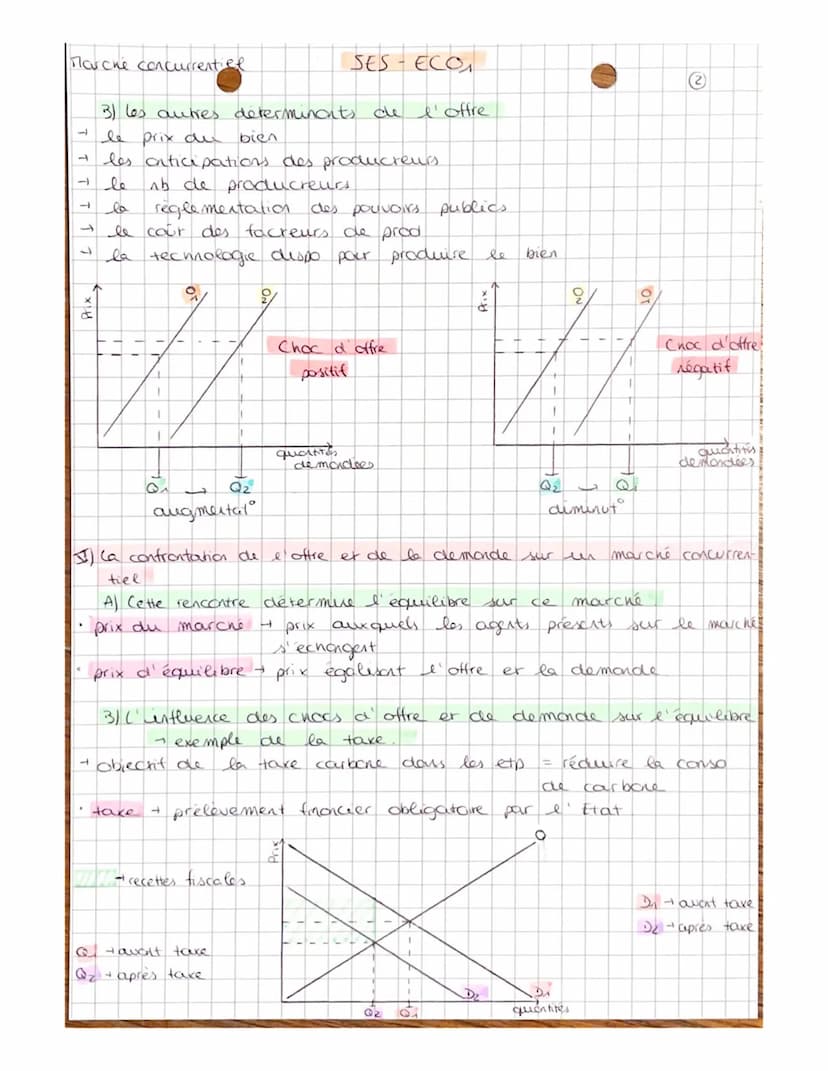 Marché concurrentiel
SES - ECO1
2
3) Les autres déterminants de l'offre
→ le prix du bien
→ les anticipations des producteurs
→ le nb de producteurs
→ la réglementation des pouvoirs publics
→ le coût des facteurs de prod
→ la technologie dispo pour produire le bien
Prix
O1
O2
Choc d'offre
positif
quantités
demandées
Q1 → Q2
augmentat°
Prix
O2
O1
Choc d'offre
négatif
quantités
demandées
Q2 → Q1
diminut°
II) La confrontation de l'offre et de la demande sur un marché concurren-
tiel
A) Cette rencontre détermine l'équilibre sur ce marché
• prix du marché → prix auxquels les agents présents sur le marché
s'échangent
• prix d'équilibre → prix égalisant l'offre et la demande
B) L'influence des chocs d'offre et de demande sur l'équilibre
→ exemple de la taxe.
→ objectif de la taxe carbone dans les etp = réduire la conso
de carbone
• taxe → prélèvement financier obligatoire par l'État
Prix
O
→ recettes fiscales
D1 → avant taxe
D2 → après taxe
Q1 → avant taxe
Q2 → après taxe
D2
D1
Q2
Q1
quantités